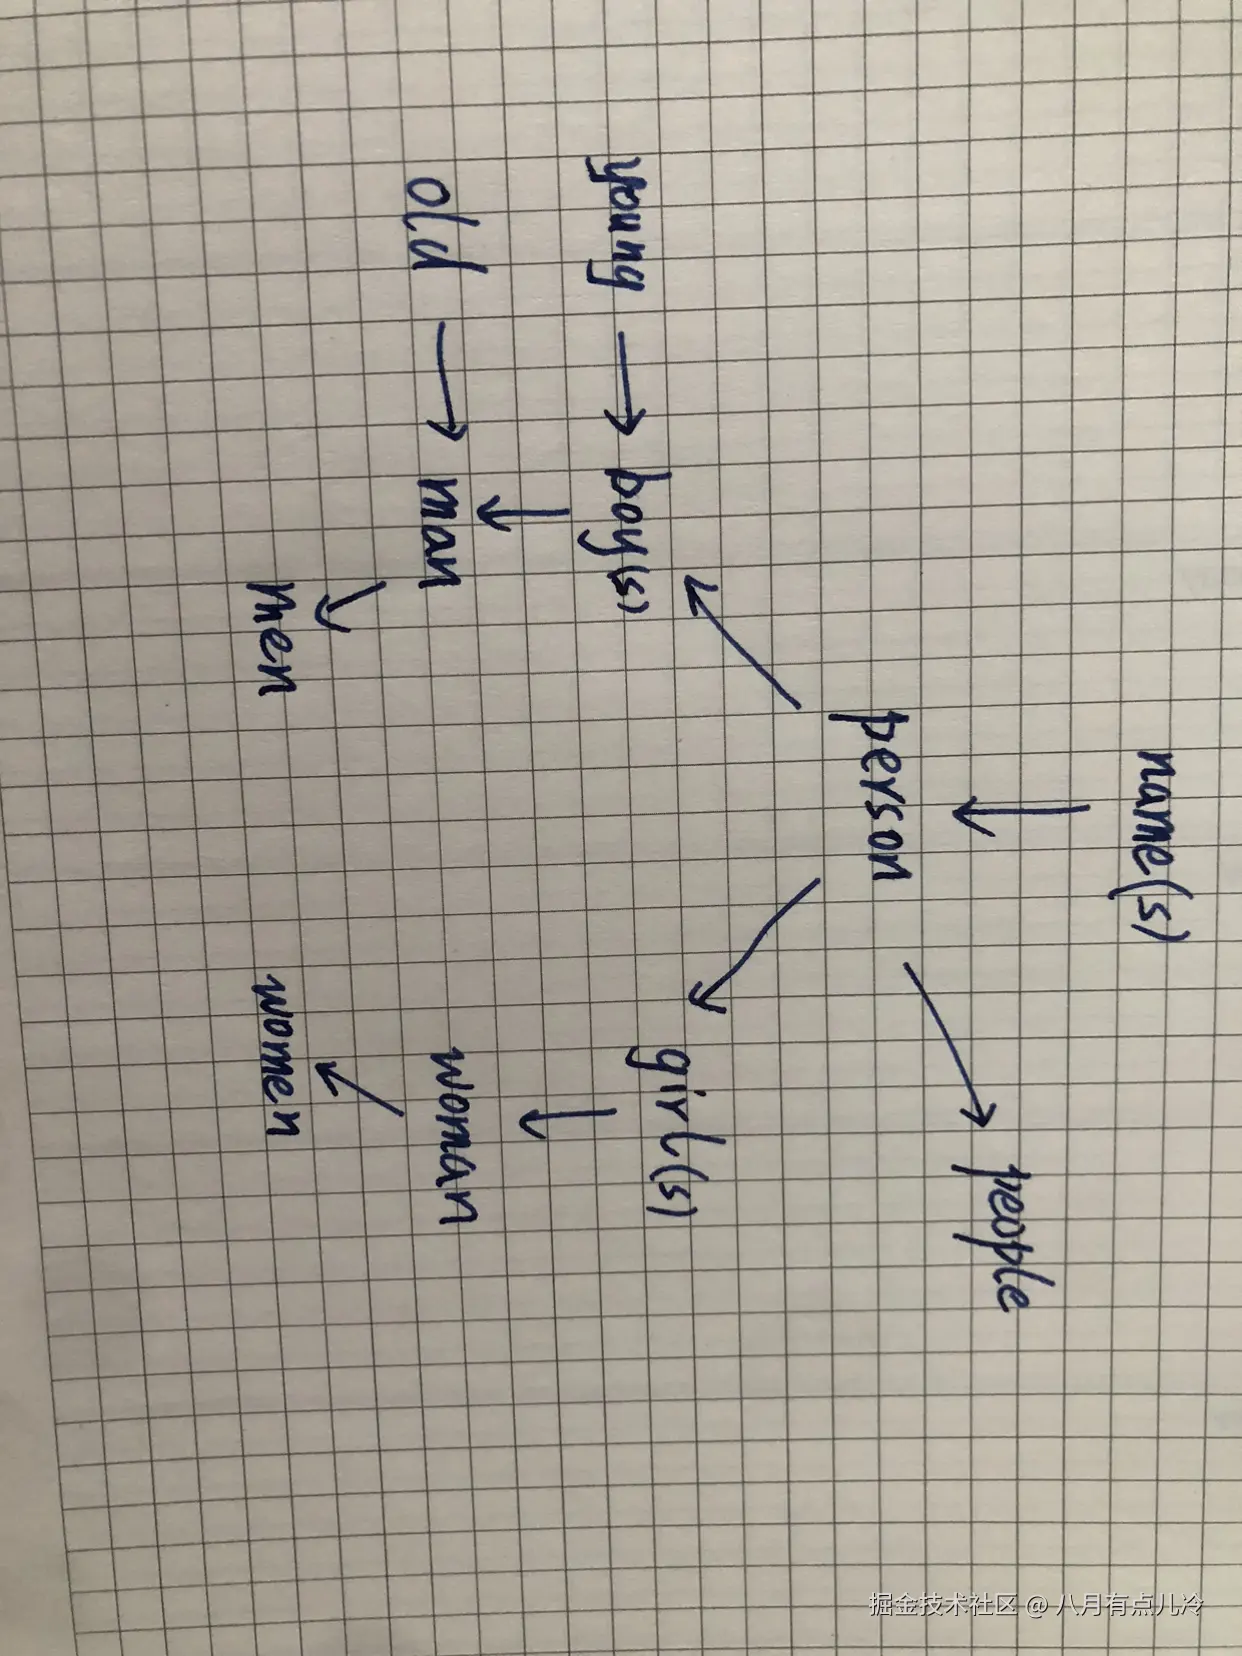 name(s)
person
people
young
boy(s)
girl(s)
old
man
woman
men
women
掘金技术社区 @ 八月有点儿冷